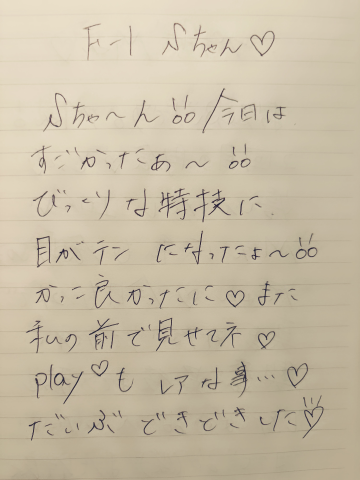 F-1 Sちゃん♡
Sちゃ〜ん!! 今日は
すごかったぁ〜!!
びっくりな特技に
目がテン になったよ〜!!
かっこ良かったに♡また
私の前で見せてネ♡
play♡も レアな事…♡
だいぶ どきどきした!!♡